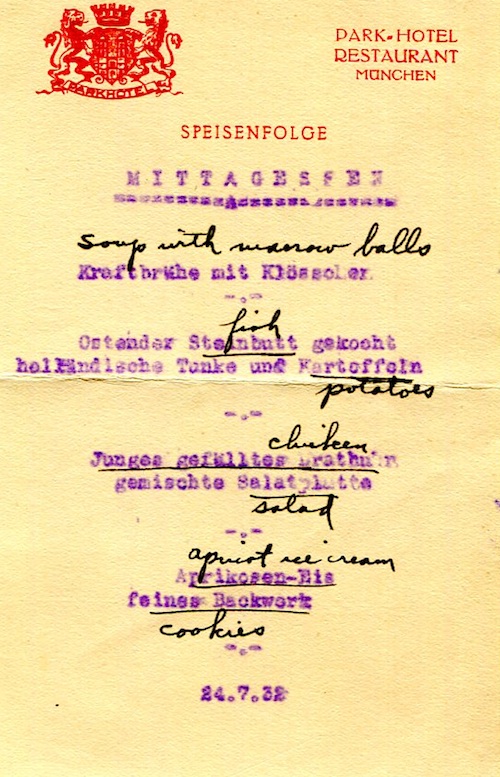 PARKHOTEL
PARK-HOTEL
RESTAURANT
MÜNCHEN
SPEISENFOLGE
MITTAGESSEN
soup with marrow balls
Kraftbrühe mit Klösschen
fish
Ostender Steinbutt gekocht
holländische Tunke und Kartoffeln
potatoes
chicken
Junges gefülltes Brathuhn
gemischte Salatplatte
salad
apricot ice cream
Aprikosen-Eis
feines Backwerk
cookies
24.7.32